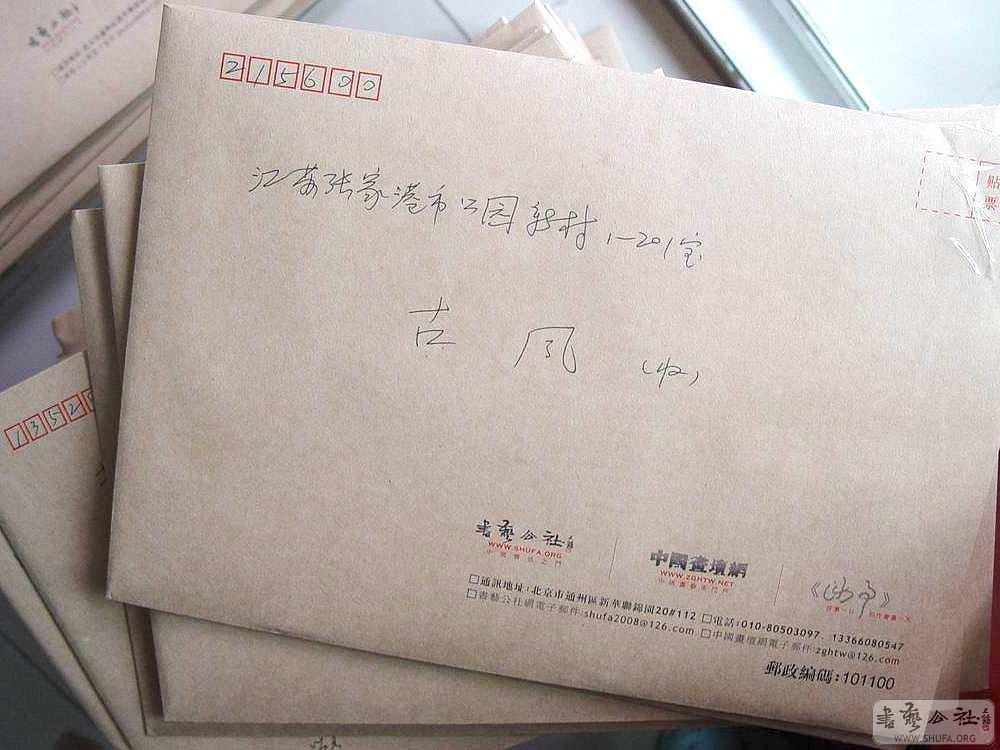 215600
江苏张家港市公园新村1-201室
古风(收)
贴
票
书艺公社
WWW.SHUFA.ORG
中國畫壇網
WWW.ZGHTW.NET
□通訊地址:北京市通州區新華聯錦園20#112 □電話:010-80503097、13366080547
□書藝公社網電子郵件:shufa2008@126.com □中國畫壇網電子郵件:zghtw@126.com
郵政編碼:101100
1352
書藝公社
WWW.SHUFA.ORG